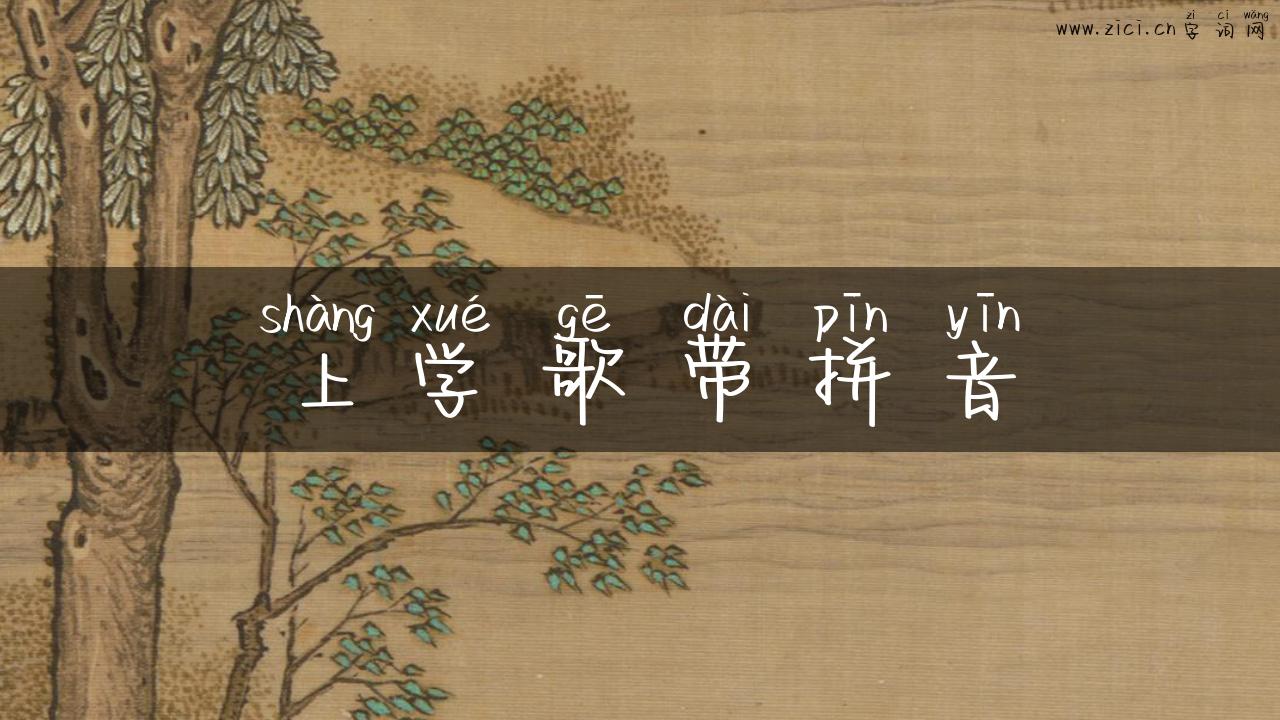 zì cí wǎng
www.zici.cn 字词网
shàng xué gē dài pīn yīn
上学歌带拼音